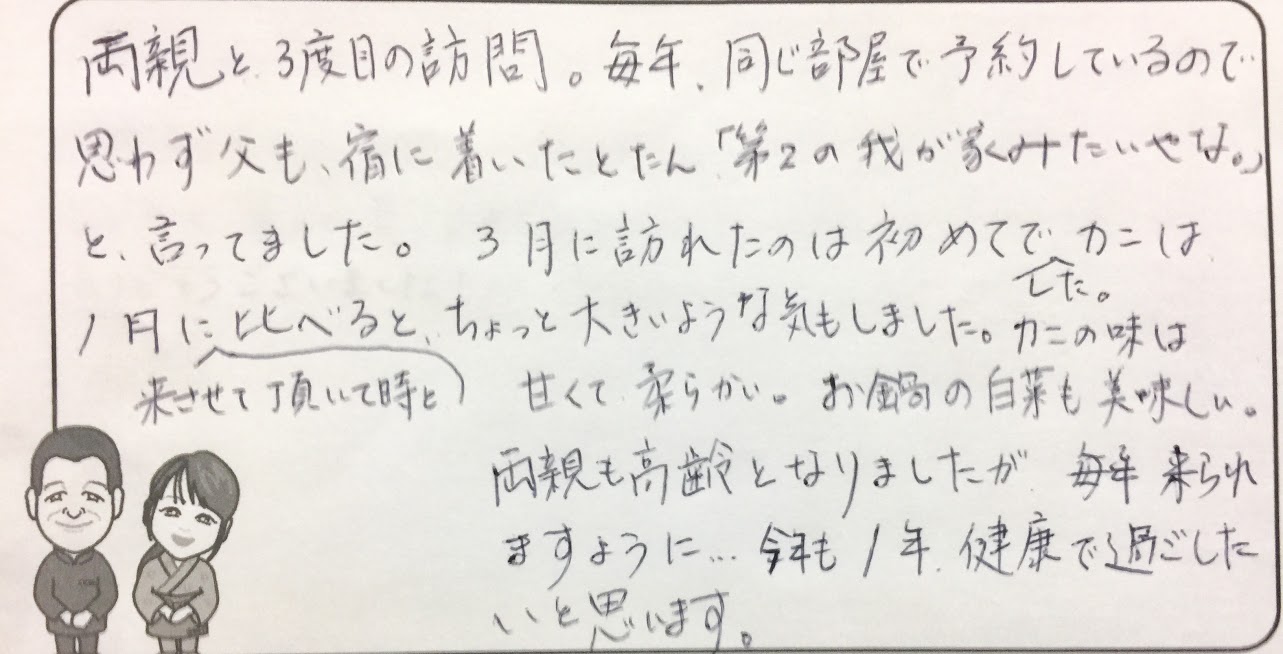 両親と、3度目の訪問。毎年、同じ部屋で予約しているので
思わず父も、宿に着いたとたん「第2の我が家みたいやな。」
と、言ってました。 3月に訪れたのは初めてで カニは
した。
1月に比べると、ちょっと大きいような気もしました。カニの味は
来させて頂いて時と
甘くて 柔らかい。お鍋の白菜も美味しい。
両親も高齢となりましたが 毎年 来られ
ますように… 今年も 1年、健康で過ごした
いと思います。